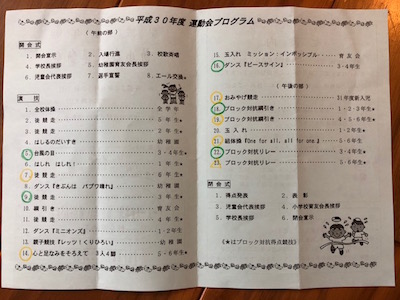 平成30年度 運動会プログラム
(午前の部)
開会式
1. 開会宣示 2. 入場行進 3. 校歌斉唱
4. 学校長挨拶 5. 幼稚園育友会長挨拶
6. 児童会代表挨拶 7. 選手宣誓 8. エール交換★
演技
1. 全校体操 全学年
2. 徒競走 5年生
3. 徒競走 6年生
4. はしるのだいすき 幼稚園
5. 台風の目 3・4年生★
6. はしれ はしれ! 1年生
7. 徒競走 2年生
8. ダンス『きぶんは パプワ晴れ』 幼稚園
9. 徒競走 3年生
10. 綱引き 育友会
11. 徒競走 4年生
12. ダンス『ミニオンズ』 1・2年生
13. 親子競技『レッツ!くりひろい』 幼稚園
14. 心と足なみをそろえて 3人4脚 5・6年生★
15. 玉入れ ミッション:インポッシブル 育友会
16. ダンス『ピースサイン』 3・4年生
(午後の部)
17. おみやげ競走 31年度新入児
18. ブロック対抗綱引き 1・2・3年生★
19. ブロック対抗綱引き 4・5・6年生★
20. 玉入れ 1・2年生★
21. 組体操『One for all, all for one』 5・6年生
22. ブロック対抗リレー 3・4・5・6年生★
23. ブロック対抗リレー
閉会式
1. 得点発表 2. 表彰
3. 児童会代表挨拶 4. 小学校育友会長挨拶
5. 学校長挨拶 6. 閉会宣示
(★はブロック対抗得点競技)